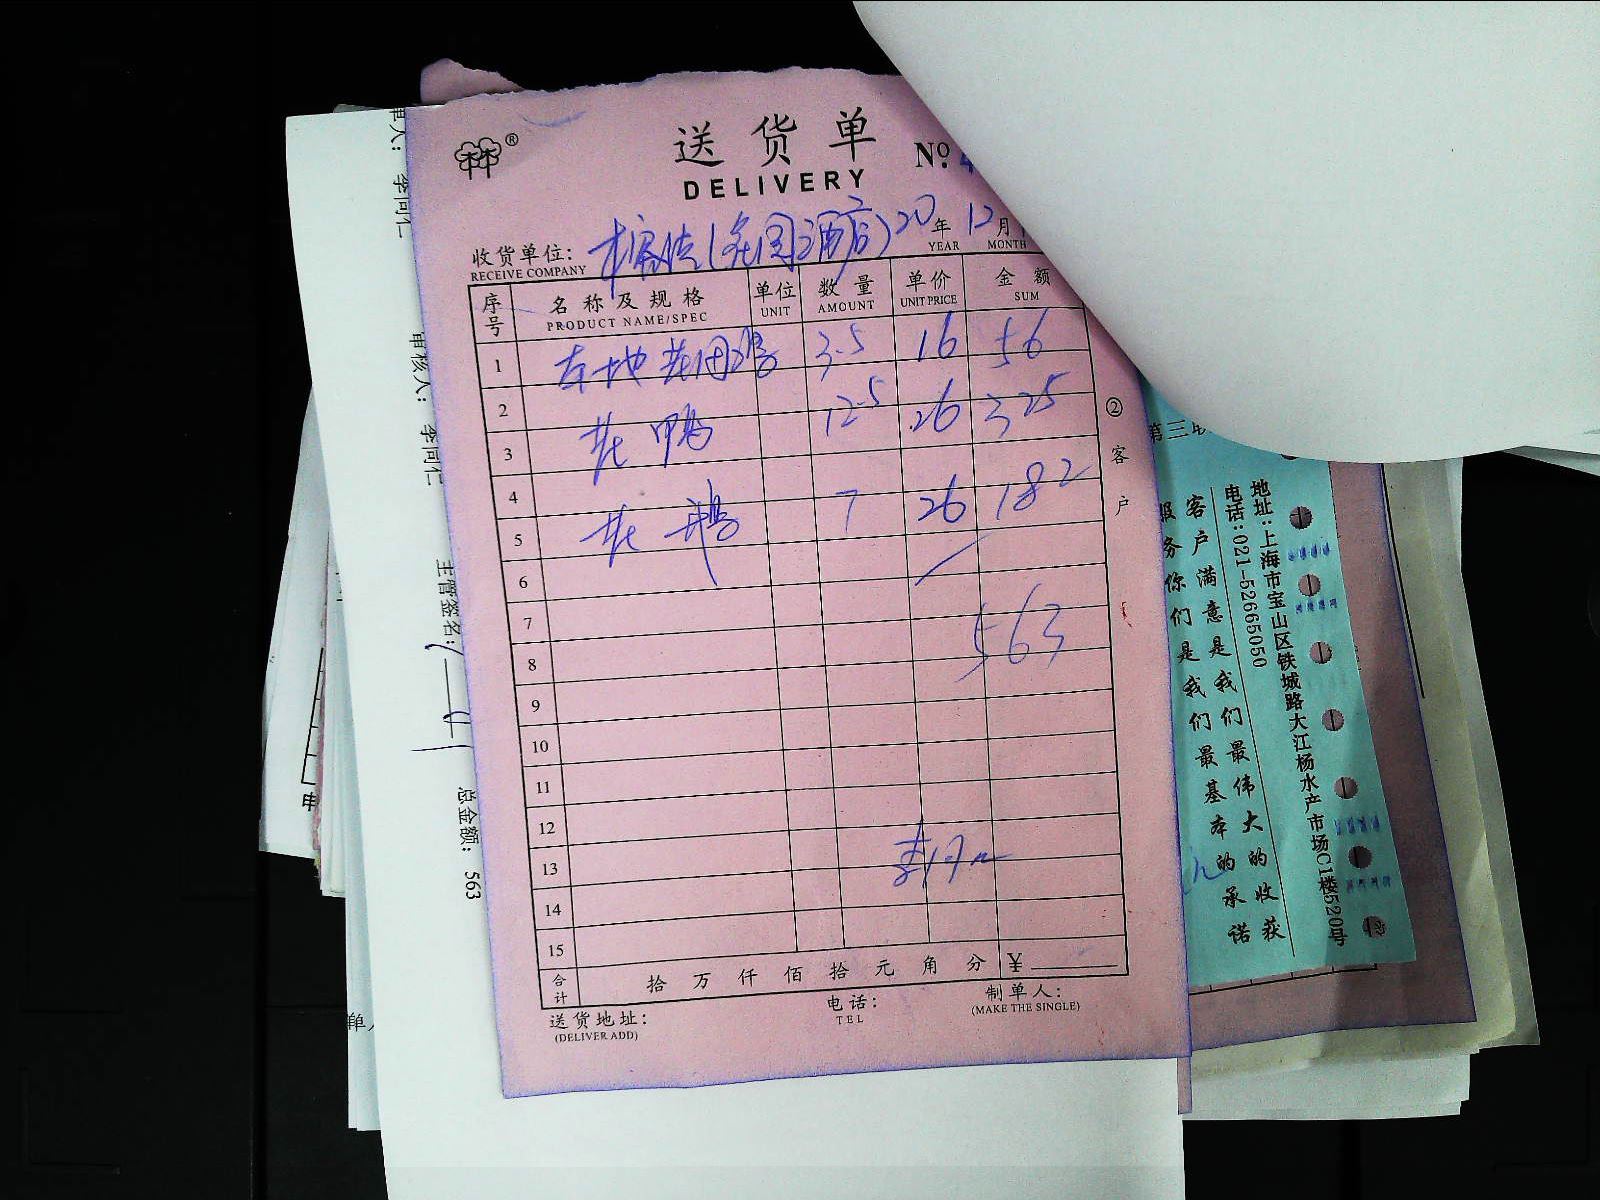 送货单
DELIVERY
Nº.
收货单位: 20年12月
RECEIVE COMPANY YEAR MONTH
序号 名称及规格 单位 数量 单价 金额
PRODUCT NAME/SPEC UNIT AMOUNT UNIT PRICE SUM
1 本地 3.5 16 56
2
3 花鸭 12.5 26 325
4
5 花鹅 7 26 182
6
7
8 563
9
10
11
12
13 李同仁
14
15
合计 拾万仟佰拾元角分 ¥
送货地址: 电话: 制单人:
(DELIVER ADD) TEL (MAKE THE SINGLE)
②客户
单人: 李同仁
审核人: 李同仁
主管签名:
总金额: 563
第三联
地址:上海市宝山区铁城路大江杨水产市场C1楼520号
电话:021-52665050
客户满意是我们最伟大的收获
服务你们是我们最基本的承诺